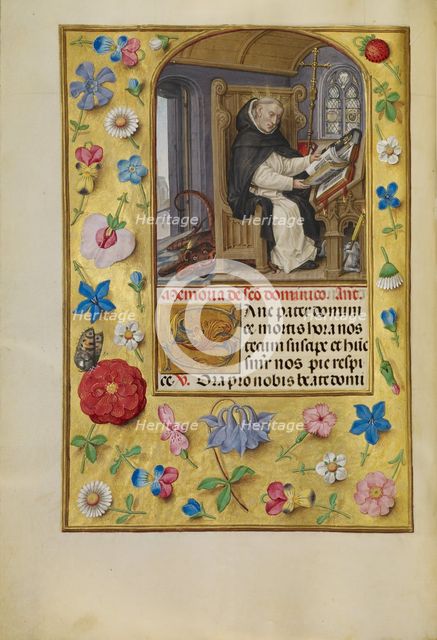 Memoria de sco dominico. Ane.
Sane pater domini
ce mortis hora nos
tecum suscipe et huic
semper nos pie respi
ce. V. Ora pro nobis beate domi
Heritage
Heritage
Heritage
Heritage
Heritage
Heritage
Heritage
Heritage
Heritage